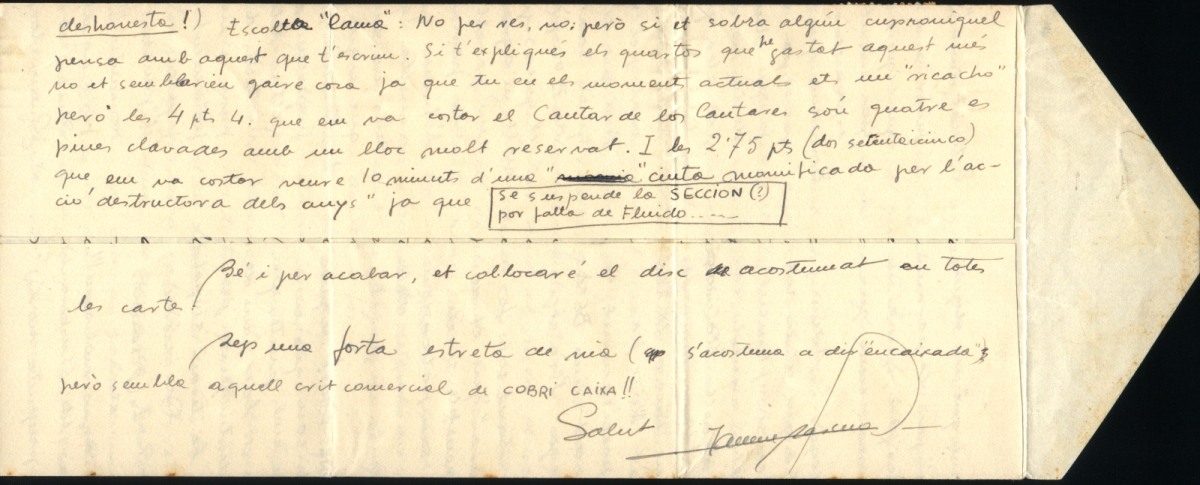 deshonesta!) Escolta "lama": No per res, no; però si et sobra algún cuproniquel
pensa amb aquest que t'escriu. Si t'expliqués els quartos que he gastat aquest més
no et semblarien gaire cosa ja que tu en els moments actuals ets un "ricacho"
però les 4 pts 4. que em va costar el Cantar de los Cantares són quatre es
pines clavades amb un lloc molt reservat. I les 2'75 pts (dos setentaicinco)
que em va costar veure 10 minuts d'una " cinta momificada per l'ac-
ció destructora dels anys" ja que
se suspende la SECCIÓN (?)
por falta de Fluido.....
Bé i per acabar, et col·locaré el disc acostumat en totes
les cartes.
Rep una forta estreta de mà (q s'acostuma a dir "encaixada";
però sembla aquell crit comercial de COBRI CAIXA!!
Salut